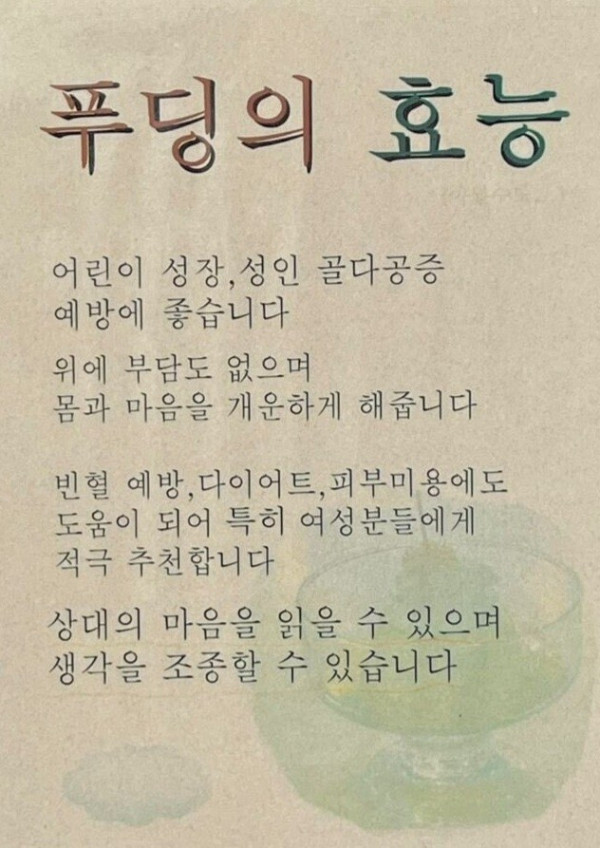 푸딩의 효능
어린이 성장,성인 골다공증
예방에 좋습니다
위에 부담도 없으며
몸과 마음을 개운하게 해줍니다
빈혈 예방,다이어트,피부미용에도
도움이 되어 특히 여성분들에게
적극 추천합니다
상대의 마음을 읽을 수 있으며
생각을 조종할 수 있습니다